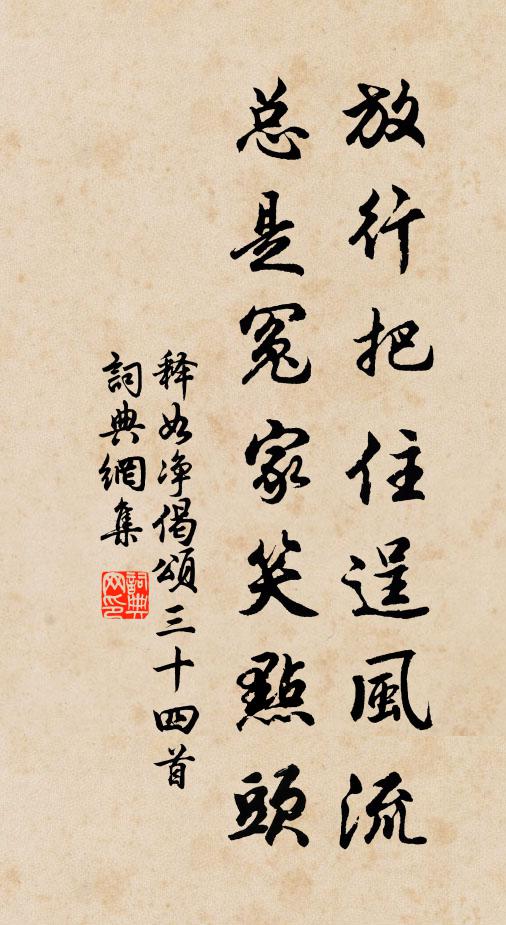 放行把住逞風流
总是冤家笑點頭
释如净偈頌三十四首
詞典網集
詞典网印